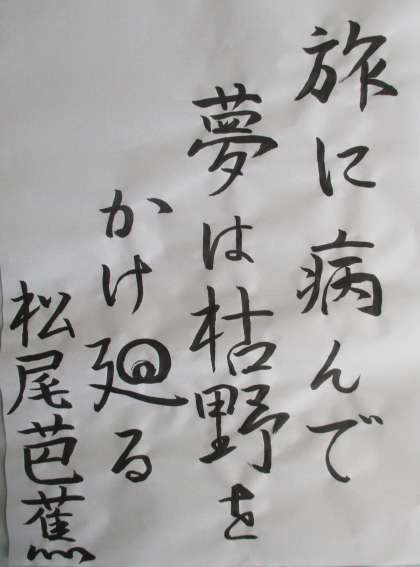 旅に病んで
夢は枯野を
かけ廻る
松尾芭蕉